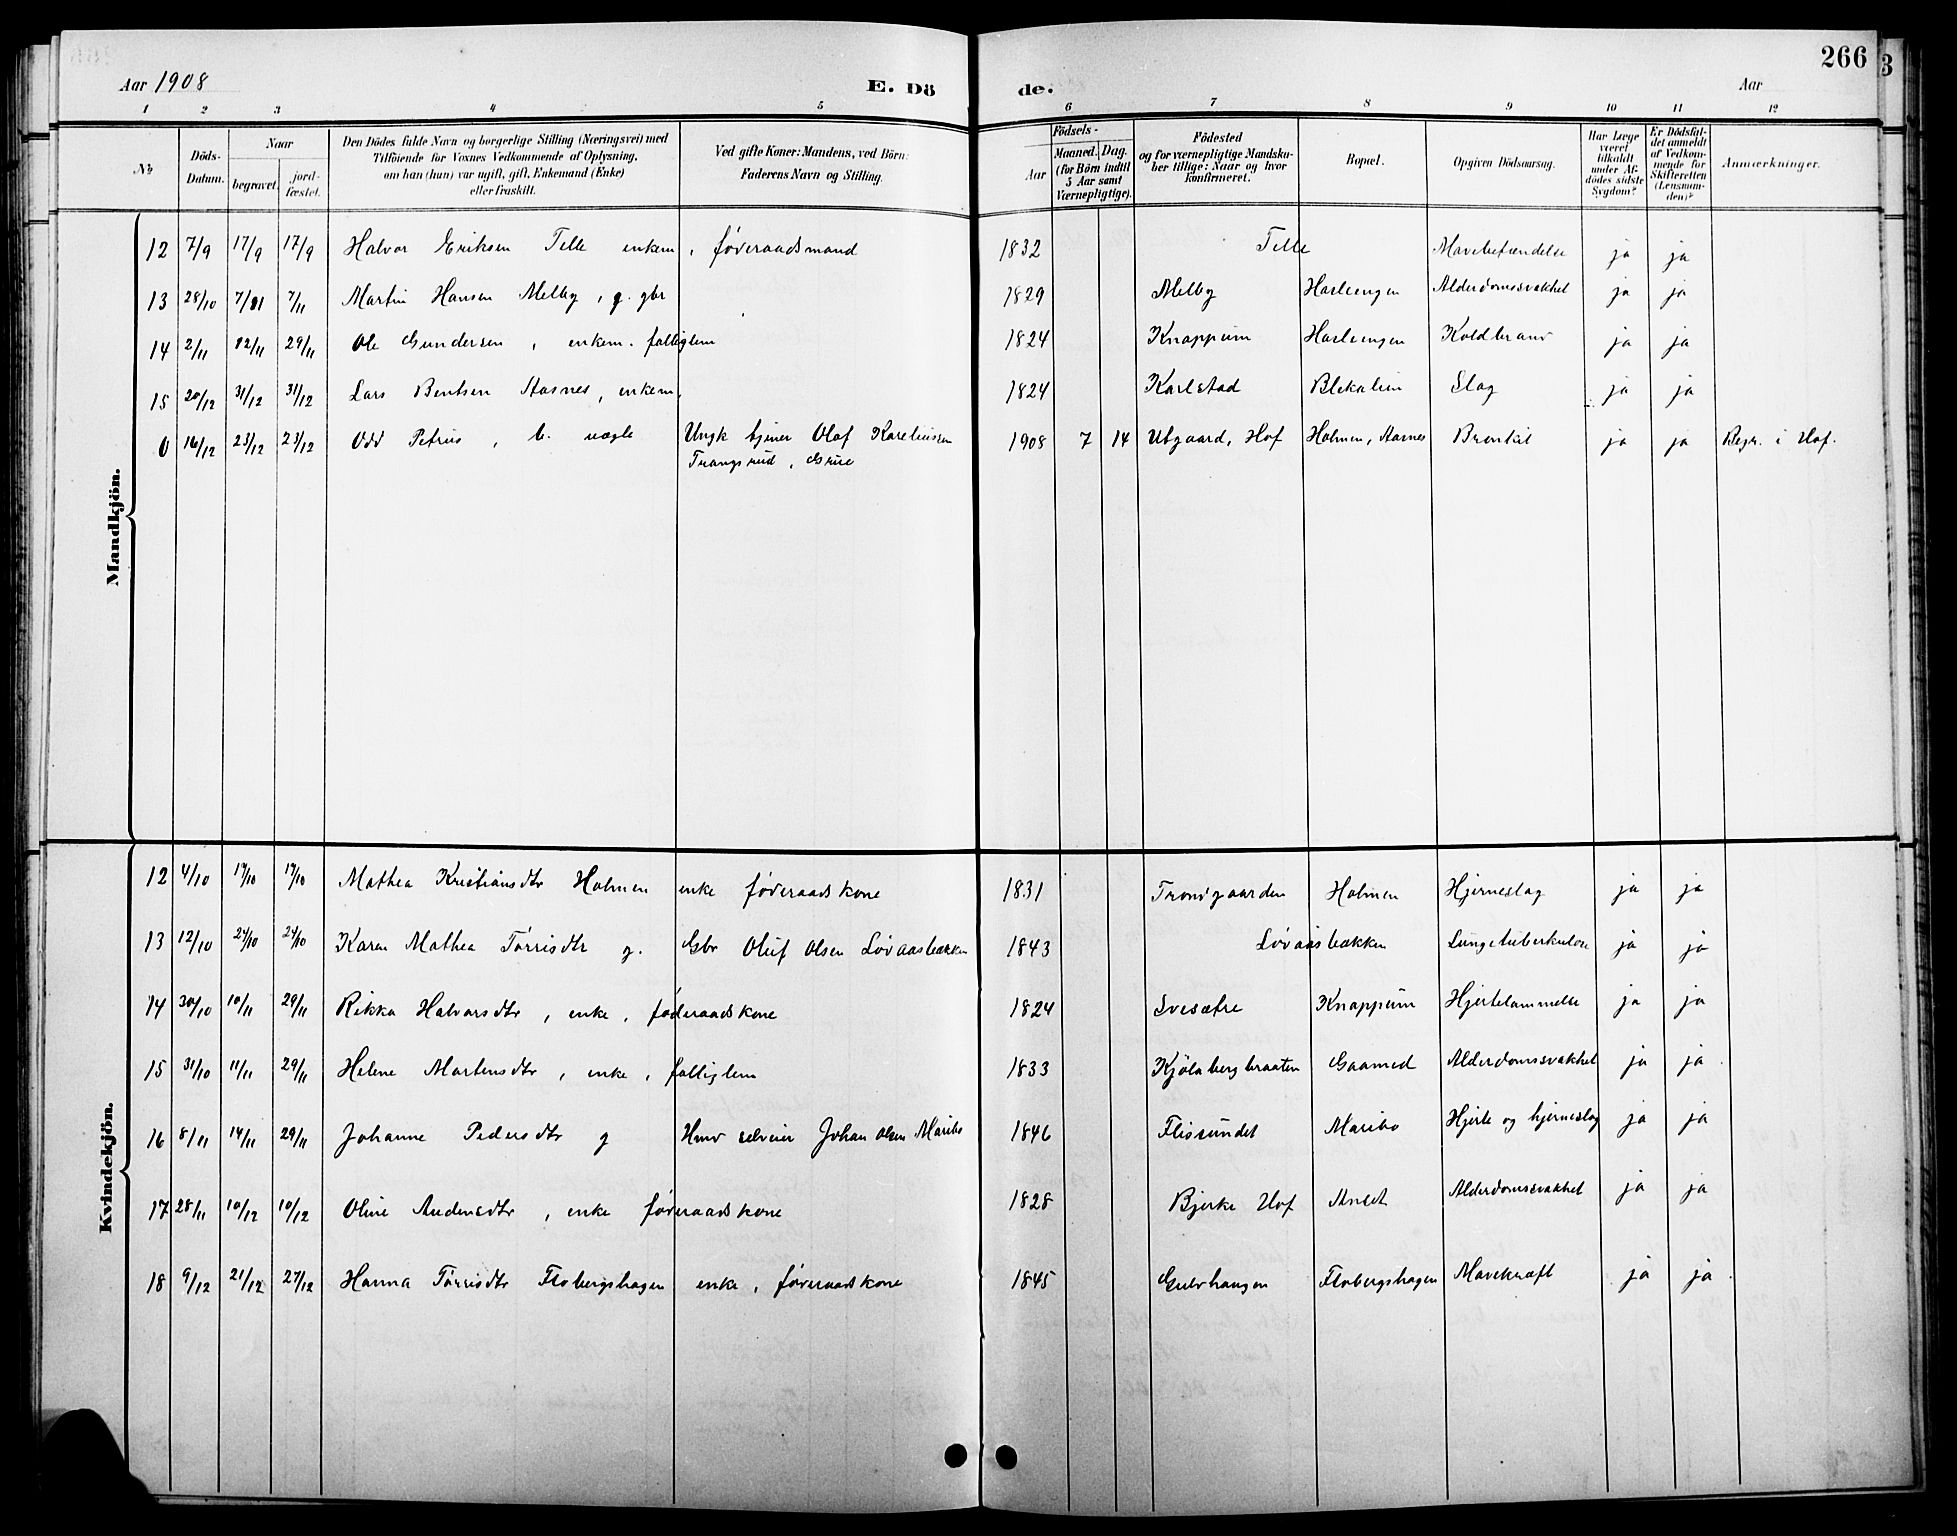 266
3
Aar 1908
E. Dö
de.
Aar
1 2 3 4 5 6 7 8 9 10 11 12
No
Döds-
Datum.
Naar
begravet.
jord-
fæstet.
Den Dödes fulde Navn og borgerlige Stilling (Næringsvei) med
Tilföiende for Voxnes Vedkommende af Oplysning,
om han (hun) var ugift, gift, Enkemand (Enke)
eller fraskilt.
Ved gifte Koner: Mandens, ved Börn:
Faderens Navn og Stilling.
Födsels-
Aar
Maaned. Dag.
(for Börn indtil
5 Aar samt
Værnepligtige).
Födested
og for værnepligtige Mandska-
ber tillige: Naar og hvor
konfirmeret.
Bopæl.
Opgiven Dödsaarsag.
Har Læge
været
tilkaldt
under Af-
dödes sidste
Sygdom?
Er Dödsfal-
det anmeldt
af Vedkom-
mende for
Skifteretten
(Lensman-
den)?
Anmærkninger.
Mandkjön.
12 7/9 17/9 17/9 Halvor Eriksen Telle enkem, føderaadsmand 1832 Telle Mavebetændelse ja ja
13 28/10 7/11 7/11 Martin Hansen Melby, g. gbr 1829 Melby Hasleengen Alderdomssvakhet ja ja
14 2/11 12/11 29/11 Ole Gundersen, enkem. fattiglem 1824 Knappum Hasleengen Koldbrand ja ja
15 20/12 31/12 31/12 Lars Bentsen Aasnes, enkem. 1824 Karlstad Slag ja ja
0 16/12 23/12 23/12 Odd Petrus, b. uægte Ungk tjener Olaf Kareliussen 1908 7 14 Utgaard, Hof Holmen, Aasnes Bronkit ja ja Begr. i Hof.
Trangsrud, Grue
Kvindekjön.
12 4/10 17/10 17/10 Mathea Kristiansdtr Holmen enke føderaadskone 1831 Trondgaarden Holmen Hjerneslag ja ja
13 12/10 24/10 24/10 Karen Mathea Tørrisdtr g. Gbr Oluf Olsen Løvaasbækken 1843 Løvaasbækken Lungetuberkulose ja ja
14 30/10 10/11 29/11 Rikka Halvorsdtr, enke, føderaadskone 1824 Svesætre Knappum Hjertelammelse ja ja
15 31/10 11/11 29/11 Helene Martensdtr, enke, fattiglem 1833 Kjølabergbraaten Alderdomssvakhet ja ja
16 8/11 14/11 29/11 Johanne Pedersdtr g Hmd selveier Johan Olsen Maribo 1846 Flissundet Maribo Hjerte og hjerneslag ja ja
17 28/11 10/12 10/12 Oline Andersdtr, enke føderaadskone 1828 Bjerke Hof Alderdomssvakhet ja ja
18 9/12 21/12 27/12 Hanna Tørrisdtr Flobergshagen enke, føderaadskone 1845 Gulvhaugen Flobergshagen Mavekræft ja ja